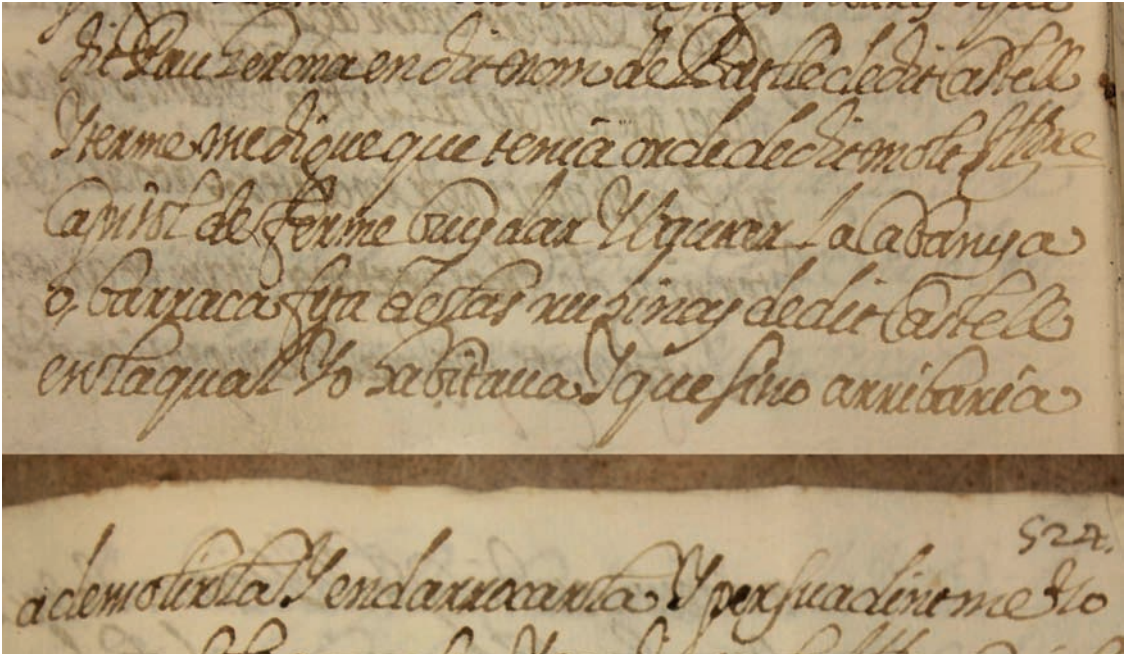 dit Pau Verona en dit nom de Batlle de dit Castell
Y terme me digue que tenia orde de dit molt Illtre
Capitol de ferme buydar Y lliurar la Cabanya
o, barraca fsta de stas ruhinas de dit Castell
en la qual Yo habitava Y que sino arribaria
524.
a demolirla Y endarrocarla Y persuadintme Yo